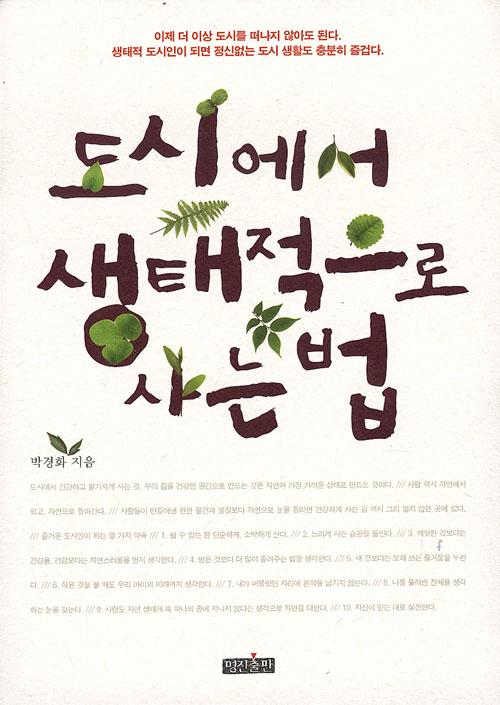 이제 더 이상 도시를 떠나지 않아도 된다.
생태적 도시인이 되면 정신없는 도시 생활도 충분히 즐겁다.
도시에서
생태적으로
사는 법
박경화 지음
도시에서 건강하고 활기차게 사는 것, 우리 집을 건강한 공간으로 만드는 것은 자연과 가장 가까운 상태로 만드는 것이다. /// 사람 역시 자연에서
왔고, 자연으로 돌아간다. /// 사람들이 만들어낸 편한 물건과 물질보다 자연으로 눈을 돌리면 건강하게 사는 길 역시 그리 멀지 않은 곳에 있다.
/// 즐거운 도시인이 되는 열 가지 약속 /// 1. 될 수 있는 한 단순하게, 소박하게 산다. /// 2. 느리게 사는 습관을 들인다. /// 3. 깨끗한 것보다는
건강을, 건강보다는 자연스러움을 먼저 생각한다. /// 4. 받은 것보다 더 많이 돌려주는 법을 생각한다. /// 5. 새 것보다는 오래 쓰는 즐거움을 누린
다. /// 6. 작은 것을 볼 때도 우리 아이의 미래까지 생각한다. /// 7. 내가 머물렀던 자리에 흔적을 남기지 않는다. /// 8. 나를 둘러싼 전체를 생각
하는 눈을 갖는다. /// 9. 사람도 자연 생태계 속 하나의 종에 지나지 않는다는 생각으로 자연을 대한다. /// 10. 자신이 믿는 대로 실천한다.
명진출판